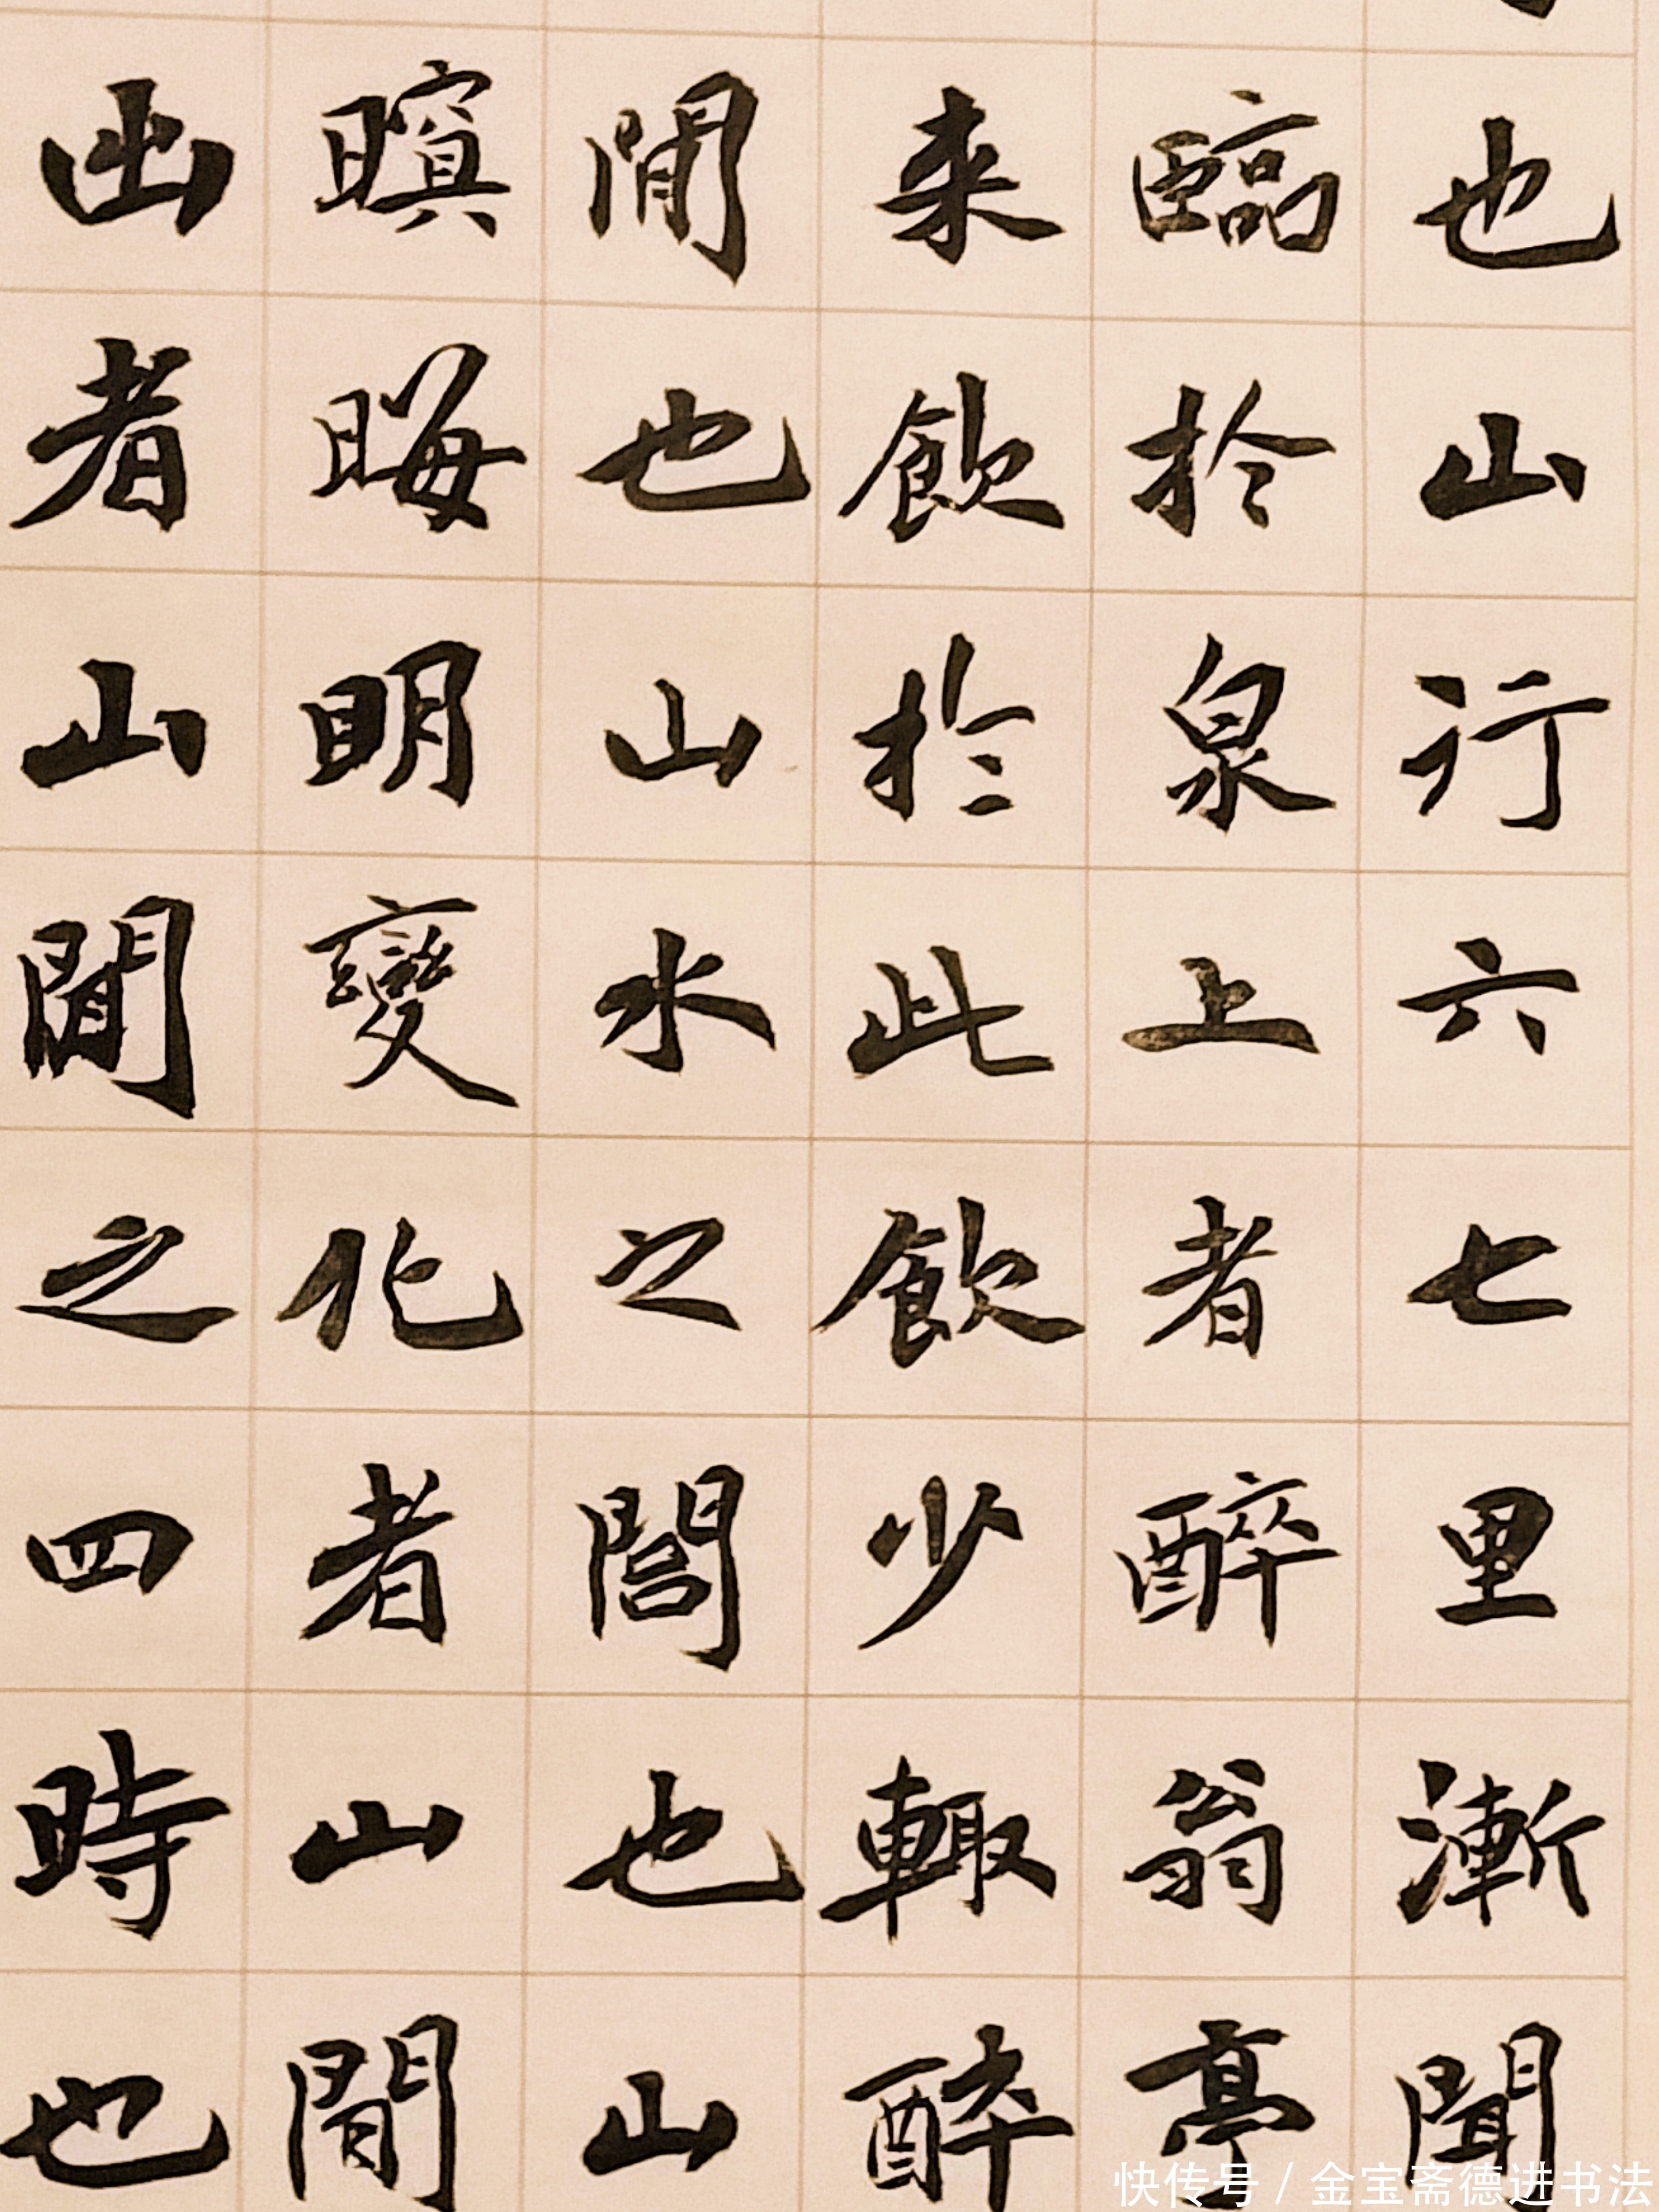 也山行六七里漸聞
臨於泉上者醉翁亭
来飲於此飲少輒醉
閒也山水之也山
暝晦明變化者山間
出者山閒之四時也
快传号 / 金宝斋德进书法